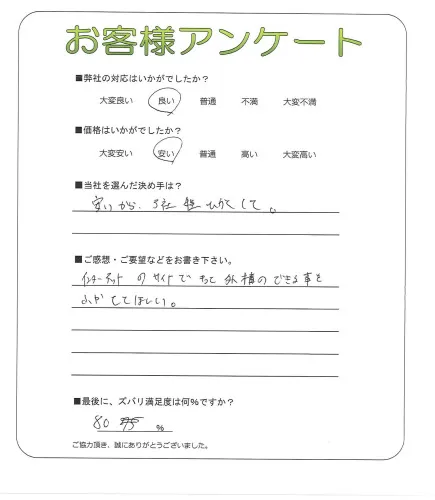 お客様アンケート
■弊社の対応はいかがでしたか?
大変良い 良い 普通 不満 大変不満
■価格はいかがでしたか?
大変安い 安い 普通 高い 大変高い
■当社を選んだ決め手は?
安いから、3社程ひかくして。
■ご感想・ご要望などをお書き下さい。
インターネットのサイトでもっと外構のできる事を
してほしい。
■最後に、ズバリ満足度は何%ですか?
80 %
ご協力頂き、誠にありがとうございました。